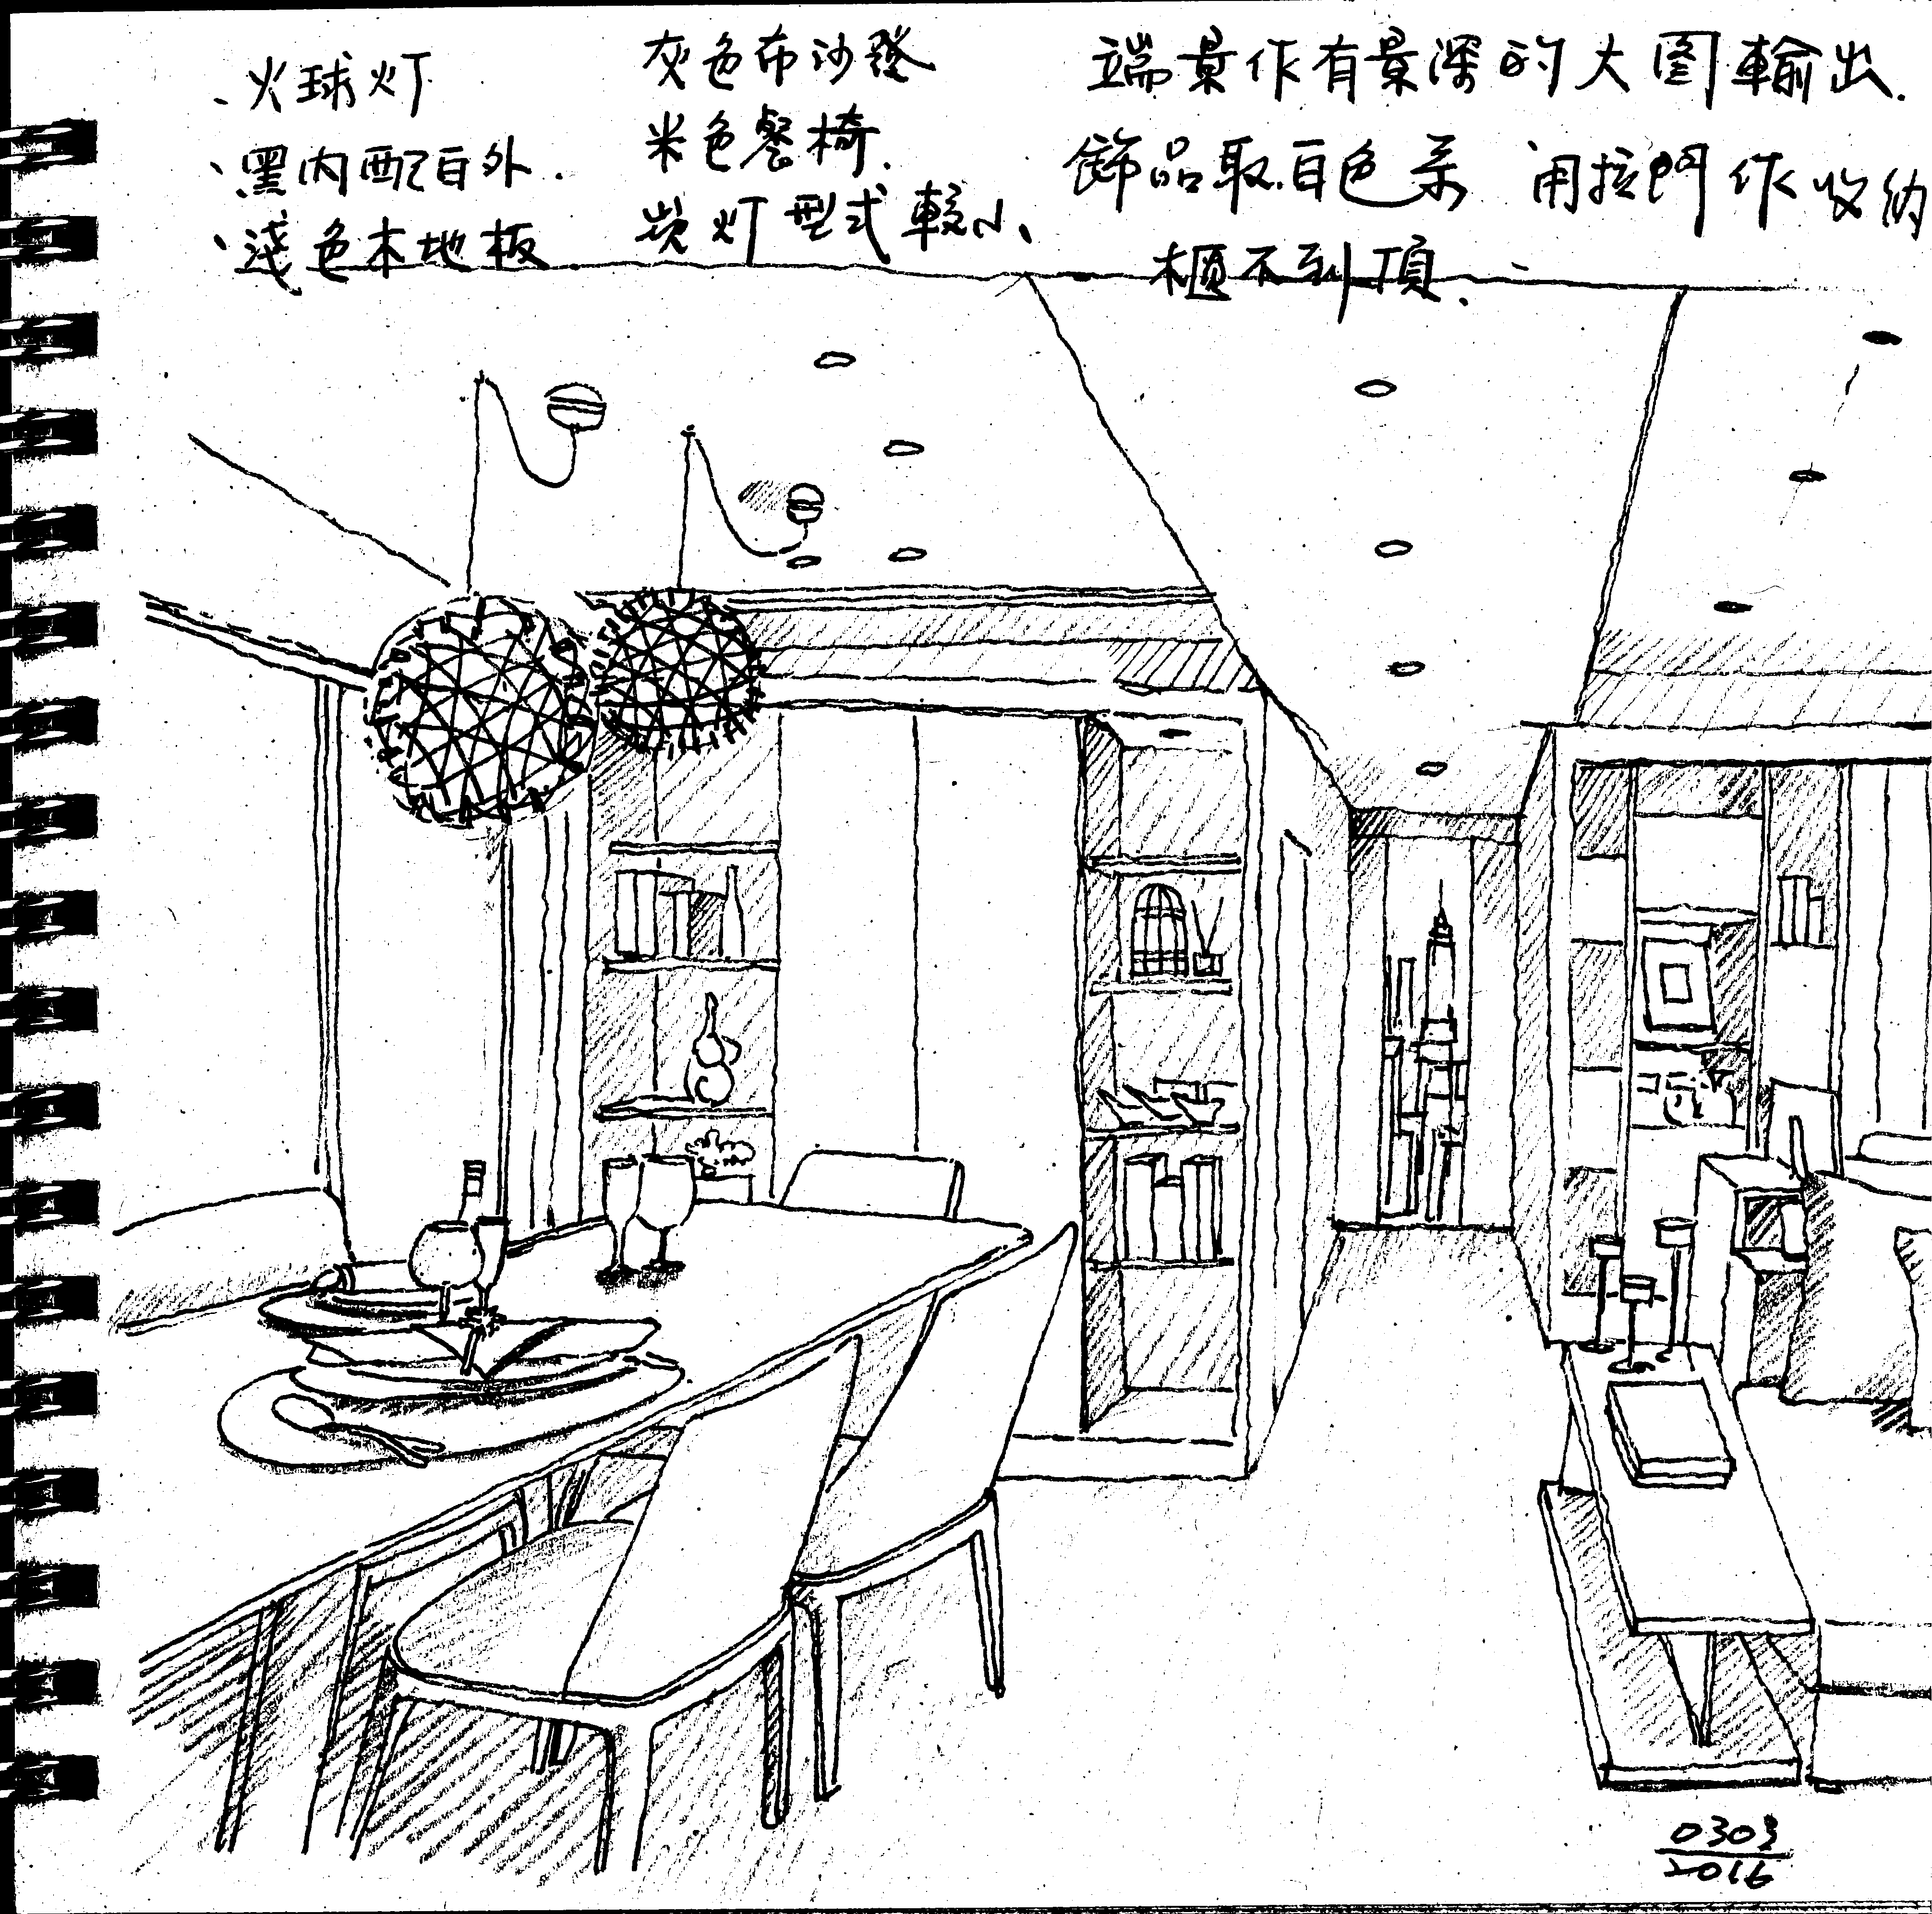 、火球灯
、黑內配白外.
、淺色木地板
灰色布沙發
米色餐椅.
崁灯型式較小、
端景作有景深的大图輸出.
飾品取白色系 用拉門作收納
櫃不到頂.
0303
2016